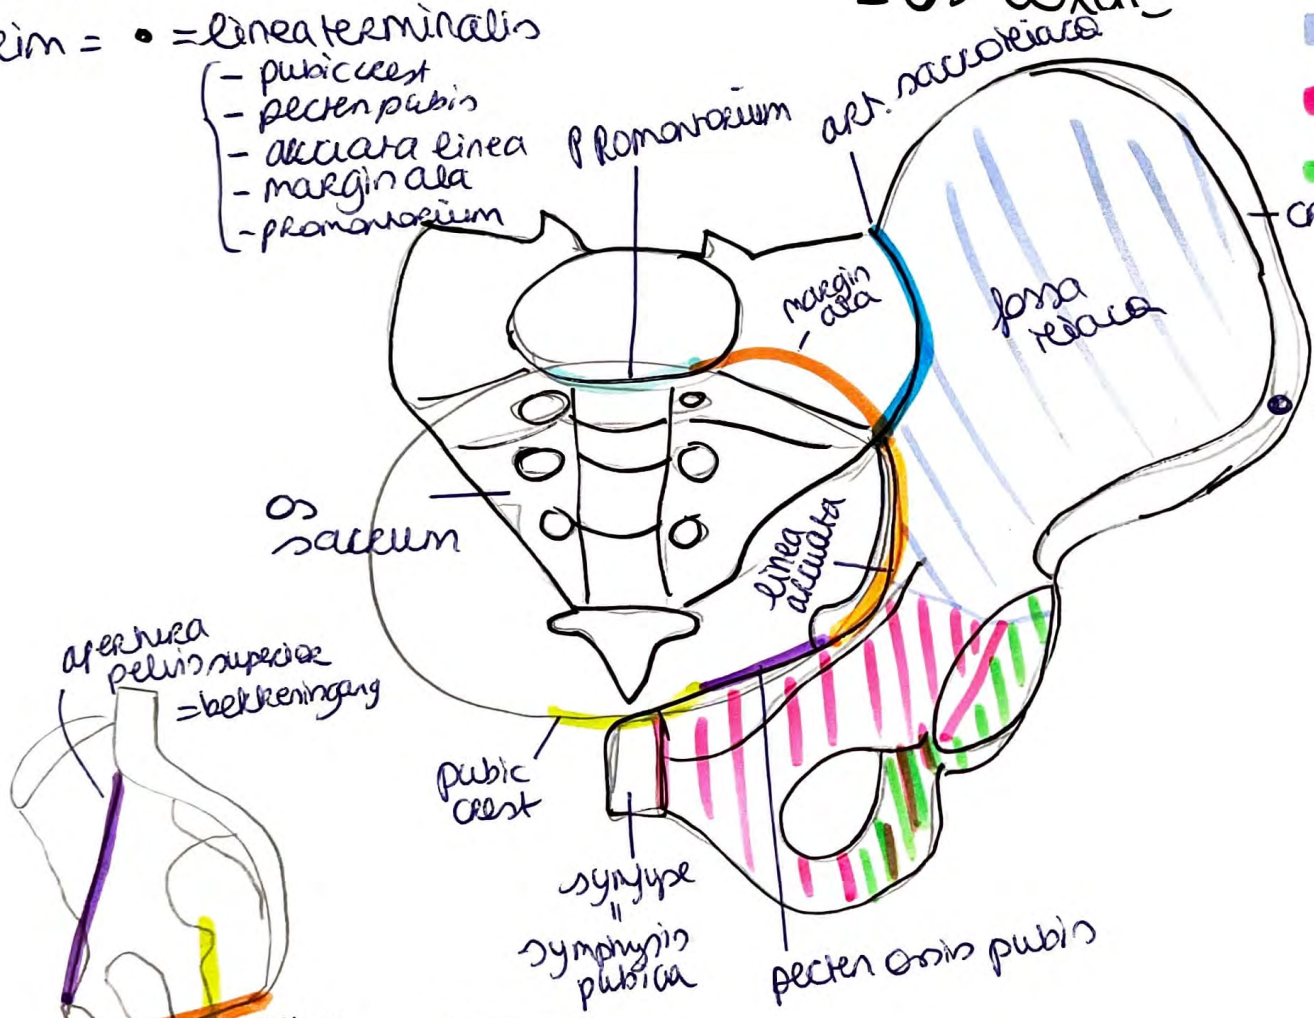 = • = linea terminalis
- pubic crest
- pecten pubis
- arcuata linea
- margin ala
- promontorium
PROMONTORIUM
art. sacroiliaca
margin
ala
fossa
iliaca
os
sacrum
linea
arcuata
apertura
pelvis superior
= bekkeningang
pubic
crest
symfyse
=
symphysis
pubica
pecten ossis pubis